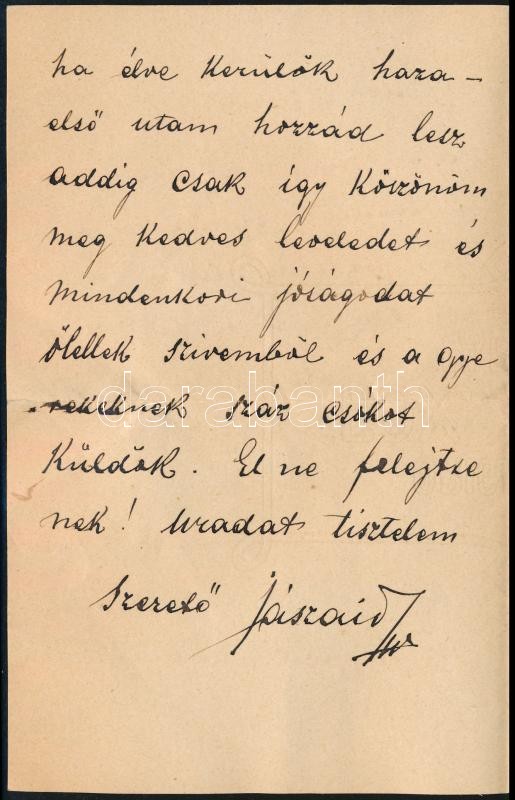 ha élve kerülök haza –
első utam hozzád lesz
addig csak így köszönöm
meg kedves leveledet és
mindenkori jóságodat
ölellek szivemből és a gye
rekeknek száz csókot
küldök. El ne felejtse
nek! Uradat tisztelem
szerető Jászaid
darabanth